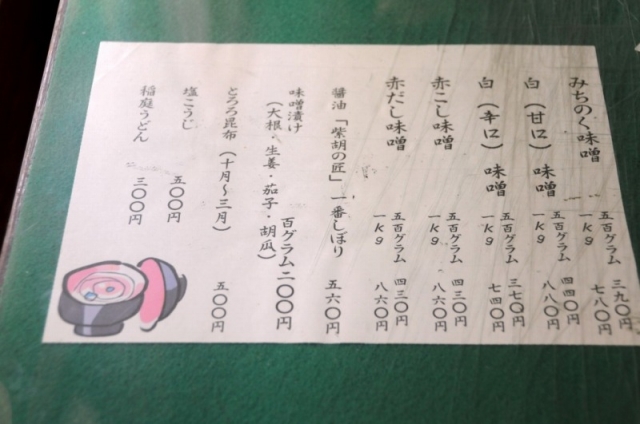 みちのく味噌 五百グラム 三九〇円
一kg 七八〇円
白(甘口)味噌 五百グラム 四四〇円
一kg 八八〇円
白(辛口)味噌 五百グラム 三七〇円
一kg 七四〇円
赤こし味噌 五百グラム 四三〇円
一kg 八六〇円
赤だし味噌 五百グラム 四三〇円
一kg 八六〇円
醤油「紫胡の匠」一番しぼり 五六〇円
味噌漬け 百グラム二〇〇円
(大根・生姜・茄子・胡瓜)
とろろ昆布(十月〜三月) 五〇〇円
塩こうじ 五〇〇円
稲庭うどん 三〇〇円